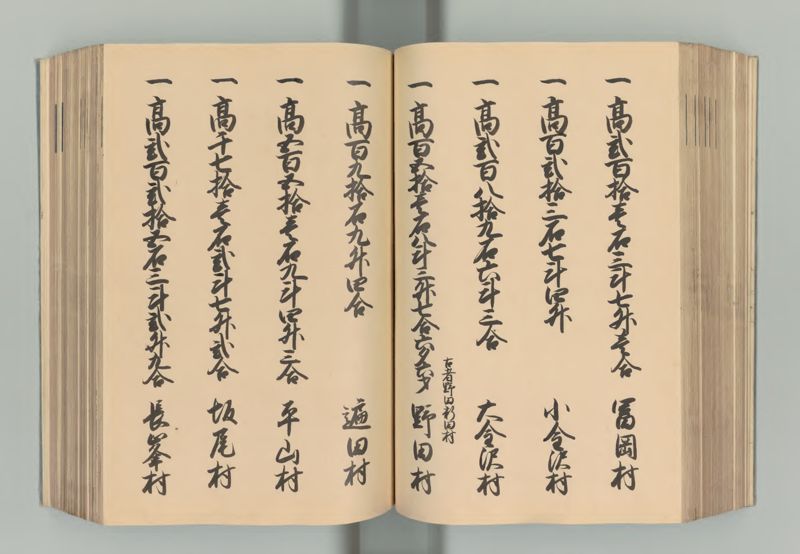 一 高弐百拾壱石三斗七升壱合 冨岡村
一 高百弐拾三石七斗四升 小金沢村
一 高弐百八拾九石六斗三合 大金沢村
古者野田新田村
一 高百五拾壱石八斗三升七合六夕六才 野田村
一 高百九拾石九升四合 遍田村
一 高五百五拾壱石九斗四升三合 平山村
一 高千七拾壱石弐斗七升弐合 坂尾村
一 高弐百弐拾五石三斗弐升九合 長峯村